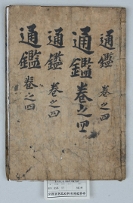 通鑑 卷之四
通鑑卷之四
通鑑 卷之四
通鑑 卷之四